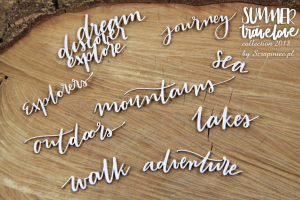 dream
discover
explore
journey
SUMMER
travelove
collection 2018
by Scrapiniec.pl
sea
explorers
mountains
lakes
outdoors
walk
adventure